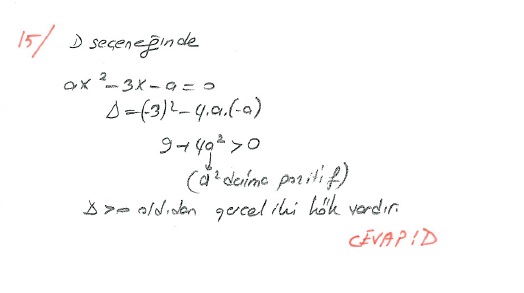 15/ D seçeneğinde
ax² - 3x - a = 0
Δ = (-3)² - 4.a.(-a)
9 + 4a² > 0
(a² daima pozitif)
Δ > 0 old.dan gerçel iki kök vardır.
CEVAP: D